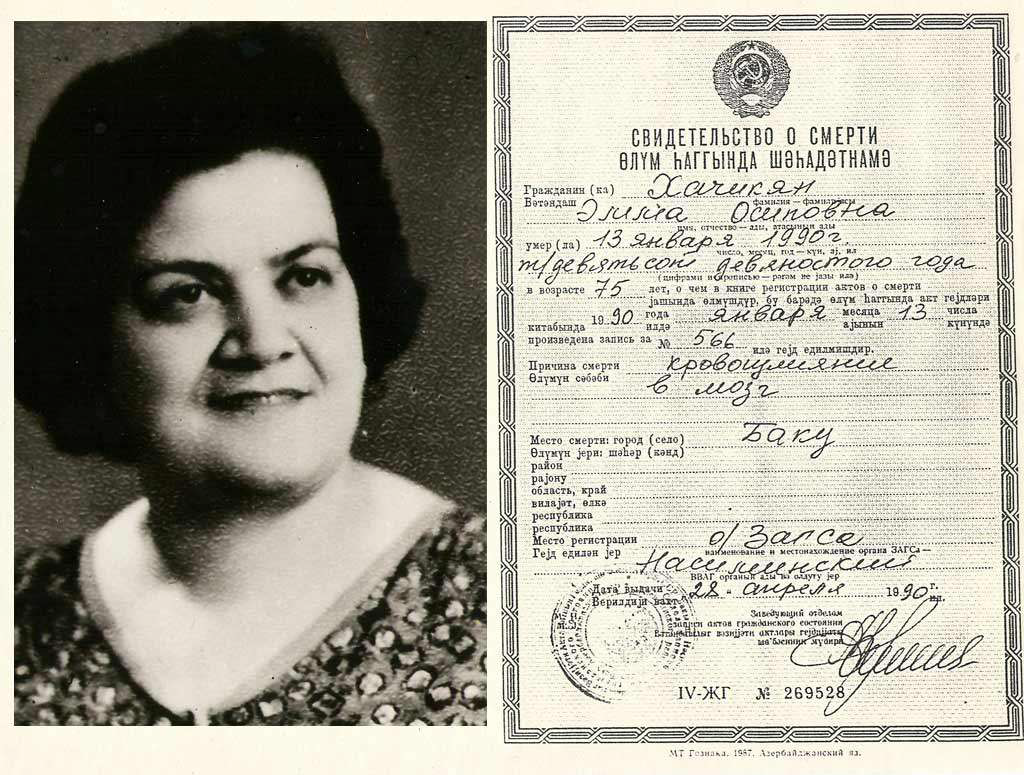 СВИДЕТЕЛЬСТВО О СМЕРТИ
ӨЛҮМ ҺАГГЫНДА ШӘҺАДӘТНАМӘ
Гражданин (ка) Хачикян
Вәтәндаш фамилия — фамилијасы
Осиповна
имя, отчество — ады, атасынын ады
умер (ла) 13 января 1990 г.
число, месяц, год — күн, ај, ил
т/девятьсот девяностого года
(цифрами и прописью — рәгәм вә јазы илә)
в возрасте 75 лет, о чем в книге регистрации актов о смерти
јашында өлмүшдүр, бу барәдә өлүм һаггында акт гејдләри
1990 года января месяца 13 числа
китабында илдә ајынын күнүндә
произведена запись за № 566
илә гејд едилмишдир.
Причина смерти кровоизлияние
Өлүмүн сәбәби в мозг
Место смерти: город (село) Баку
Өлүмүн јери: шәһәр (кәнд)
район
рајону
область, край
вилајәт, өлкә
республика
республика
Место регистрации о/Загса
Гејд едилән јер наименование и местонахождение органа ЗАГСа —
Насиминский
ВВАГ органын ады вә олдуғу јер
Дата выдачи 28 апреля 1990 г.
Верилдији вахт ил.
Заведующий отделом
записи актов гражданского состояния
IV-ЖГ № 269528
МТ Гознака. 1987. Азербайджанский яз.